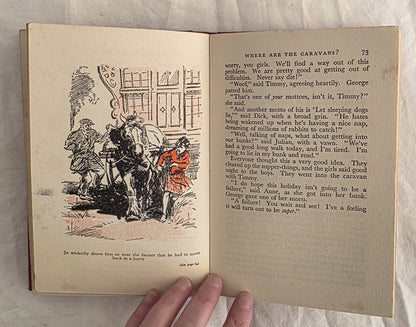 Jo wickedly drove him so near the farmer that he had to move
back in a hurry
WHERE ARE THE CARAVANS? 73
worry, you girls. We'll find a way out of this
problem. We are pretty good at getting out of
difficulties. Never say die!"
"Woof," said Timmy, agreeing heartily. George
patted him.
"That's one of your mottoes, isn't it, Timmy?"
she said.
"And another motto of his is 'Let sleeping dogs
lie,'" said Dick, with a broad grin. "He hates
being wakened up when he's having a nice nap,
dreaming of millions of rabbits to catch!"
"Well, talking of naps, what about getting into
our bunks?" said Julian, with a yawn. "We've
had a good long walk today, and I'm tired. I'm
going to lie in my bunk and read."
Everyone thought this a very good idea. They
cleared up the supper-things, and the girls said good
night to the boys. They went into the caravan
with Timmy.
"I do hope this holiday isn't going to be a
failure," said Anne, as she got into her bunk.
George gave one of her snorts.
"A failure! You wait and see! I've a feeling
it will turn out to be super."